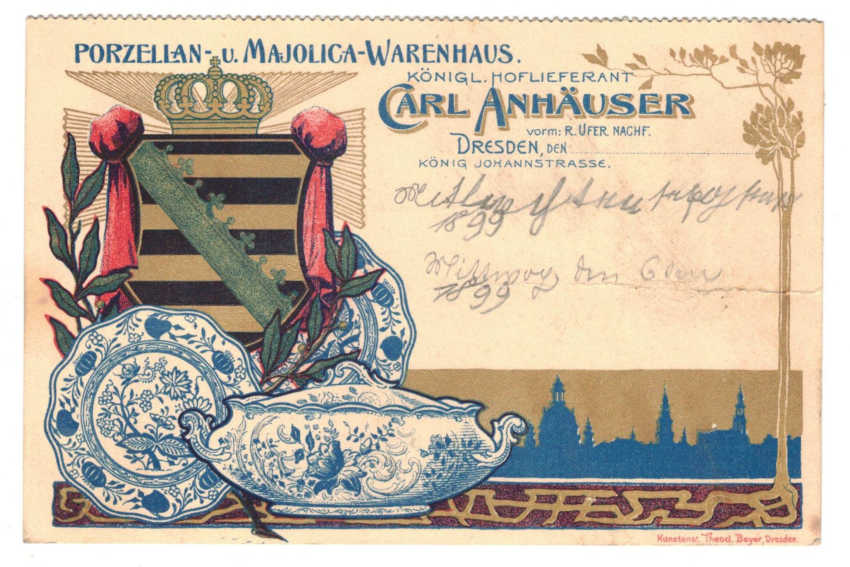 PORZELLAN- U. MAJOLICA-WARENHAUS.
KÖNIGL. HOFLIEFERANT
CARL ANHÄUSER
VORM: R. UFER NACHF.
DRESDEN, DEN
KÖNIG JOHANNSTRASSE.
1899
den 6ten
1899
Kunstanst. Theod. Beyer, Dresden.